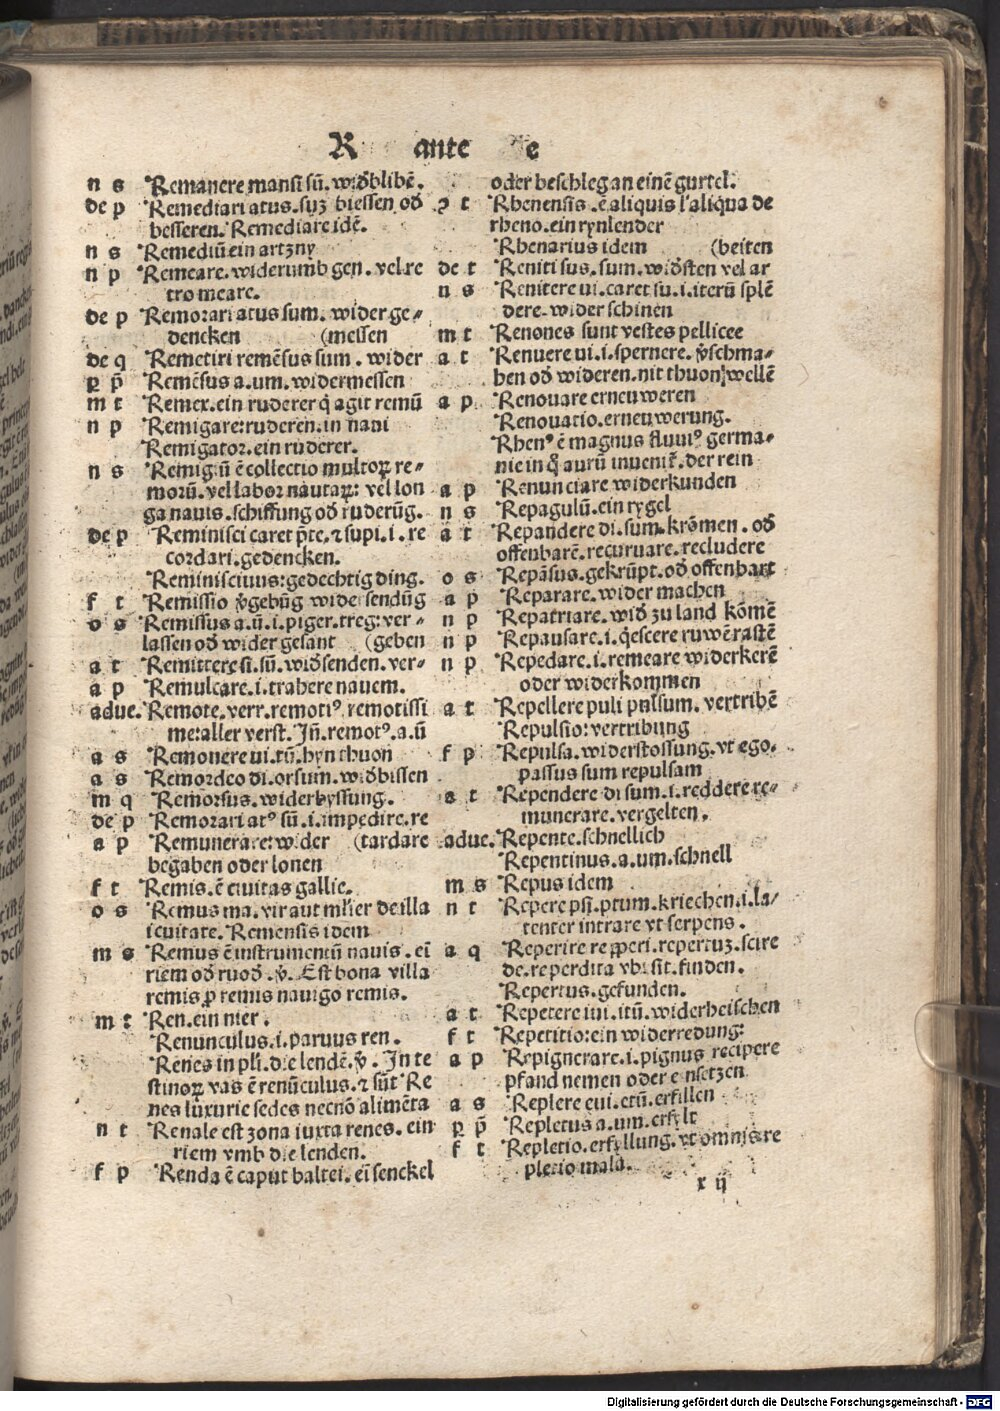 R ante e
n s Remanere mansi sū. wiđblibē.
de p Remediari atus. suʒ biessen ođ
besseren. Remediare idē.
n s Remediū ein artzny
n p Remeare. widerumb gen. vel re
tro meare.
de p Remorari atus sum. wider ge⸗
dencken (messen
de q Remetiri remēsus sum. wider
ꝑ p̄ Remēsus a. um. widermessen
m t Remex. ein ruderer q̇ agit remū
n p Remigare: ruderen. in naui
Remigator. ein ruderer.
n s Remigiū ē collectio multoꝝ re⸗
morū. vel labor nautaꝝ: vel lon
ga nauis. schiffung ođ ruderūg.
de p Reminisci caret p̄te. ⁊ supi. i. re
cordari. gedencken.
Reminisciuus: gedechtig ding.
f t Remissio v̄gebūg wider sendūg
o s Remissus a. ū. i. piger. treg: ver⸗
lassen ođ wider gesant (geben
a t Remittere si. sū. wiđsenden. ver⸗
a p Remulcare. i. trahere nauem.
adue. Remote. verr. remotiꝰ remotissi
me: aller verst. Jn̄. remotꝰ. a. ū
a s Remouere ui. tū. hyn thuon
a s Remordeo di. orsum. wiđbissen
m q Remorsus. widerbyssung.
de p Remorari atꝰ sū. i. impedire. re
a p Remunerare: wider (tardare
begaben oder lonen
f t Remis. ē ciuitas gallie.
o s Remus ma. vir aut mĺier de illa
icuitate. Remensis idem
m s Remus ē instrumentū nauis. eī
riem ođ ruođ. v̄. Est bona villa
remis ꝑ remis nauigo remis.
m t Ren. ein nier.
Renunculus. i. paruus ren.
Renes in pli. die lendē. v̄. Jn te
stinoꝝ vas ē renūculus. ⁊ sūt Re
nes luxurie sedes necnō alimēta
n t Renale est zona iuxta renes. ein
riem vmb die lenden.
f p Renda ē caput baltei. eī senckel
oder beschleg an einē gurtel.
ꝯ t Rhenensis. ē aliquis ĺ aliqua de
rheno. ein rynlender
Rhenarius idem (beiten
de t Reniti sus. sum. wiđsten vel ar
n s Renitere ui. caret su. i. iterū splē
dere. wider schinen
m t Renones sunt vestes pellicee
a t Renuere ui. i. spernere. v̄schma⸗
hen ođ wideren. nit thuon wellē
a p Renouare erneuweren
Renouatio. erneuwerung.
Rhenꝰ ē magnus fluuiꝰ germa⸗
nie in q̊ aurū inuenit̄. der rein
a p Renunciare widerkunden
n s Repagulū. ein rygel
a t Repandere di. sum. krōmen. ođ
offenbarē. recuruare. recludere
o s Repāsus. gekrūpt. ođ offenbart
a p Reparare. wider machen
n p Repatriare. wiđ zu land kōmē
n p Repausare. i. q̇escere ruwē rastē
n p Repedare. i. remeare widerkerē
oder widerkommen
a t Repellere puli pulsum. vertribē
Repulsio: vertribung
f p Repulsa. widerstossung. vt ego.
passus sum repulsam
a t Rependere di sum. i. reddere re⸗
munerare. vergelten.
adue. Repente. schnellich
Repentinus. a. um. schnell
m s Repus idem
n t Repere psi. ptum. kriechen. i. la⸗
tenter intrare vt serpens.
a q Reperire re ꝑperi. repertuʒ. scire
de. reperdita vbi sit. finden.
Repertus. gefunden.
a t Repetere iui. itū. widerheischen
f t Repetitio: ein widerredung:
a p Repignerare. i. pignus recipere
pfand nemen oder ensetzen
a s Replere eui. etū. erfillen
ꝑ p̄ Repletus a. um. erfylt
f t Repletio. erfyllung. vt omnis re
pletio mala.
x ij
Digitalisierung gefördert durch die Deutsche Forschungsgemeinschaft - DFG